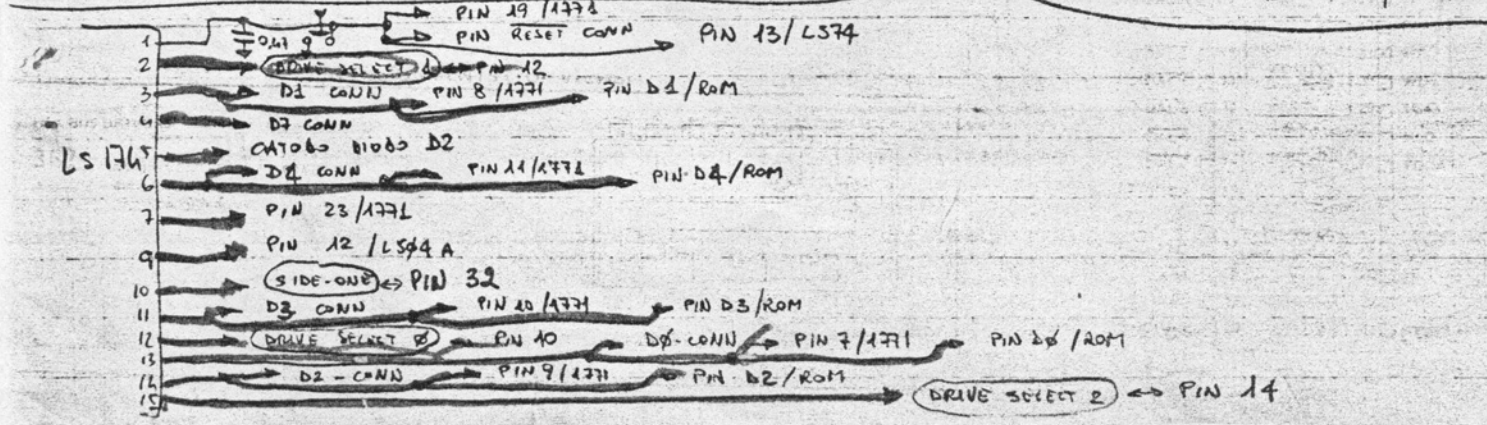 PIN 19/1771
1 0,47 PIN RESET CONN PIN 13/LS74
2 DRIVE SELECT 1 ↔ PIN 12
3 D1 CONN PIN 8/1771 PIN D1/ROM
4 D7 CONN
LS174 5 CATODO DIODO D2
6 D4 CONN PIN 11/1771 PIN D4/ROM
7 PIN 23/1771
9 PIN 12/LSØ4 A
10 SIDE-ONE ↔ PIN 32
11 D3 CONN PIN 10/1771 PIN D3/ROM
12 DRIVE SELECT Ø ↔ PIN 10
13 DØ-CONN PIN 7/1771 PIN DØ/ROM
14 D2-CONN PIN 9/1771 PIN D2/ROM
15 DRIVE SELECT 2 ↔ PIN 14